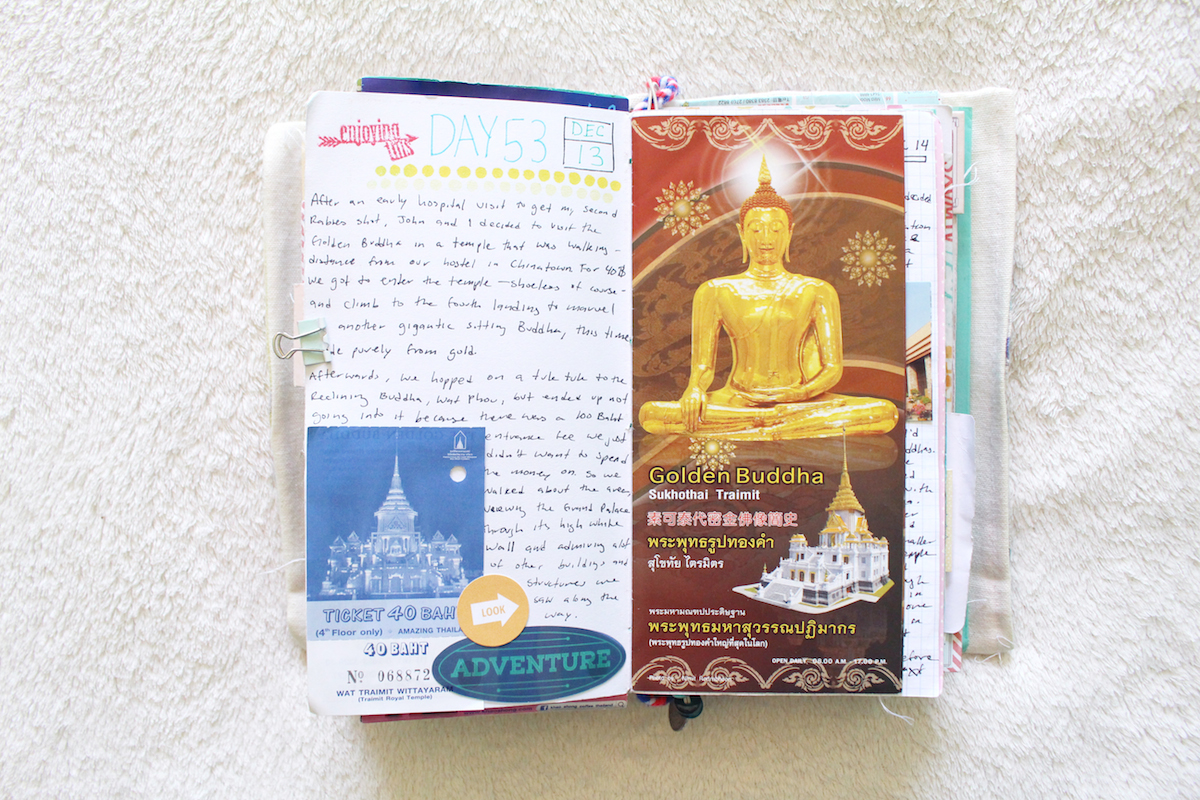 enjoying this
DAY 53
DEC
13
After an early hospital visit to get my second
Rabies shot, John and I decided to visit the
Golden Buddha in a temple that was walking-
distance from our hostel in Chinatown. For 40฿
we got to enter the temple — shoeless of course -
and climb to the fourth landing to marvel
another gigantic sitting Buddha, this time
de purely from gold.
Afterwards, we hopped on a tuk tuk to the
Reclining Buddha, Wat Phow, but ended up not
going into it because there was a 100 Baht
entrance fee we just
didn't want to spend
the money on. So we
walked about the area,
viewing the Grand Palace
through its high white
wall and admiring alot
of other buildings and
structures we
saw along the
way.
TICKET 40 BAH
(4th Floor only) - AMAZING THAILA
40 BAHT
Nº 068872
WAT TRAIMIT WITTAYARAM
(Traimit Royal Temple)
LOOK
ADVENTURE
Golden Buddha
Sukhothai Traimit
素可泰代密金佛像簡史
พระพุทธรูปทองคำ
สุโขทัย ไตรมิตร
พระมหามณฑปประดิษฐาน
พระพุทธมหาสุวรรณปฏิมากร
(พระพุทธรูปทองคำใหญ่ที่สุดในโลก)
OPEN DAILY 08.00 A.M. - 17.00 P.M.
14